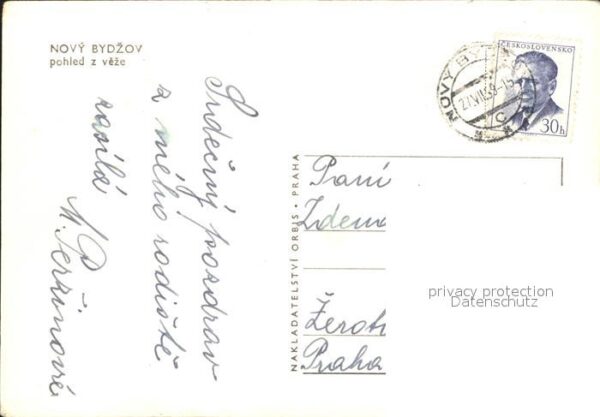 NOVÝ BYDŽOV
pohled z věže
Srdečný pozdrav
z mého rodiště
zasílá
NAKLADATELSTVÍ ORBIS • PRAHA
ČESKOSLOVENSKO
30h
NOVÝ BY
Paní
Zdena
Žerot
Praha
privacy protection
Datenschutz